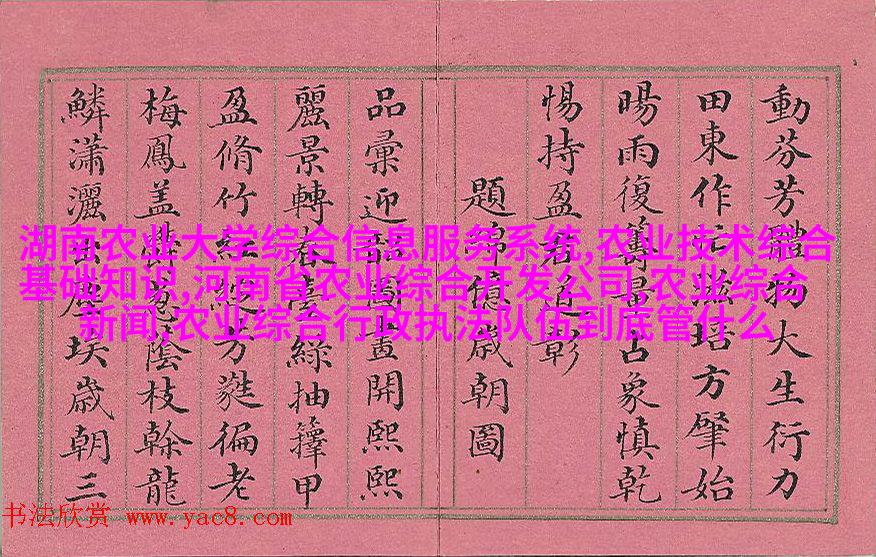 動芬芳體物大生衍力
田東作滋培方肇始
暘雨復量占象慎乾
惕持盈若彰
題錦億歲朝圖
品彙迎圖畫開熙熙
麗景轉春臺綠抽籜甲
盈脩竹紅方蕤徧老
梅鳳蓋蔭枝榦龍
鱗瀟灑出塵埃歲朝三
湖南农业大学综合信息服务系统,农业技术综合
基础知识,河南省农业综合开发公司,农业综合
新闻,农业综合行政执法队伍到底管什么
书法欣赏 www.yac8.com